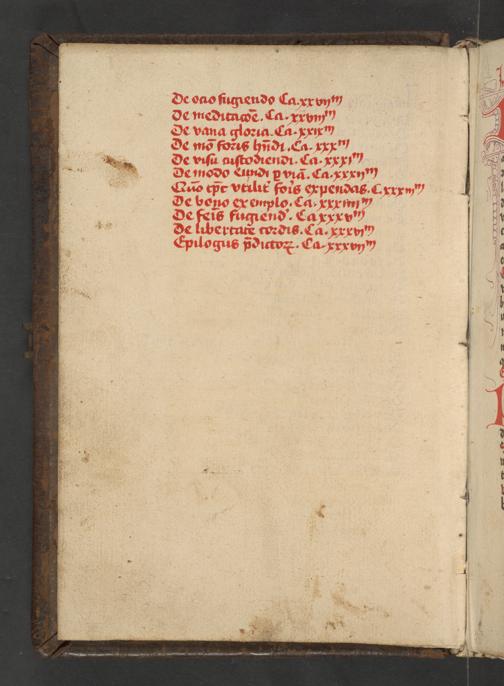 De ocio fugiendo Ca. xxvijᵐ
De meditacōe. Ca. xxviijᵐ
De vana gloria. Ca. xxixᵐ
De mō foris hn̄di. Ca. xxxᵐ
De visu custodiendi. Ca. xxxjᵐ
De modo eundi p viā. Ca. xxxijᵐ
Quō tp̄e vtilit' foīs expendas. C. xxxiijᵐ
De bono exemplo. Ca. xxxiiijᵐ
De feīs fugiend'. Ca xxxvᵐ
De libertate cordis. Ca. xxxvjᵐ
Epilogus p̄dictoꝝ. Ca. xxxvijᵐ